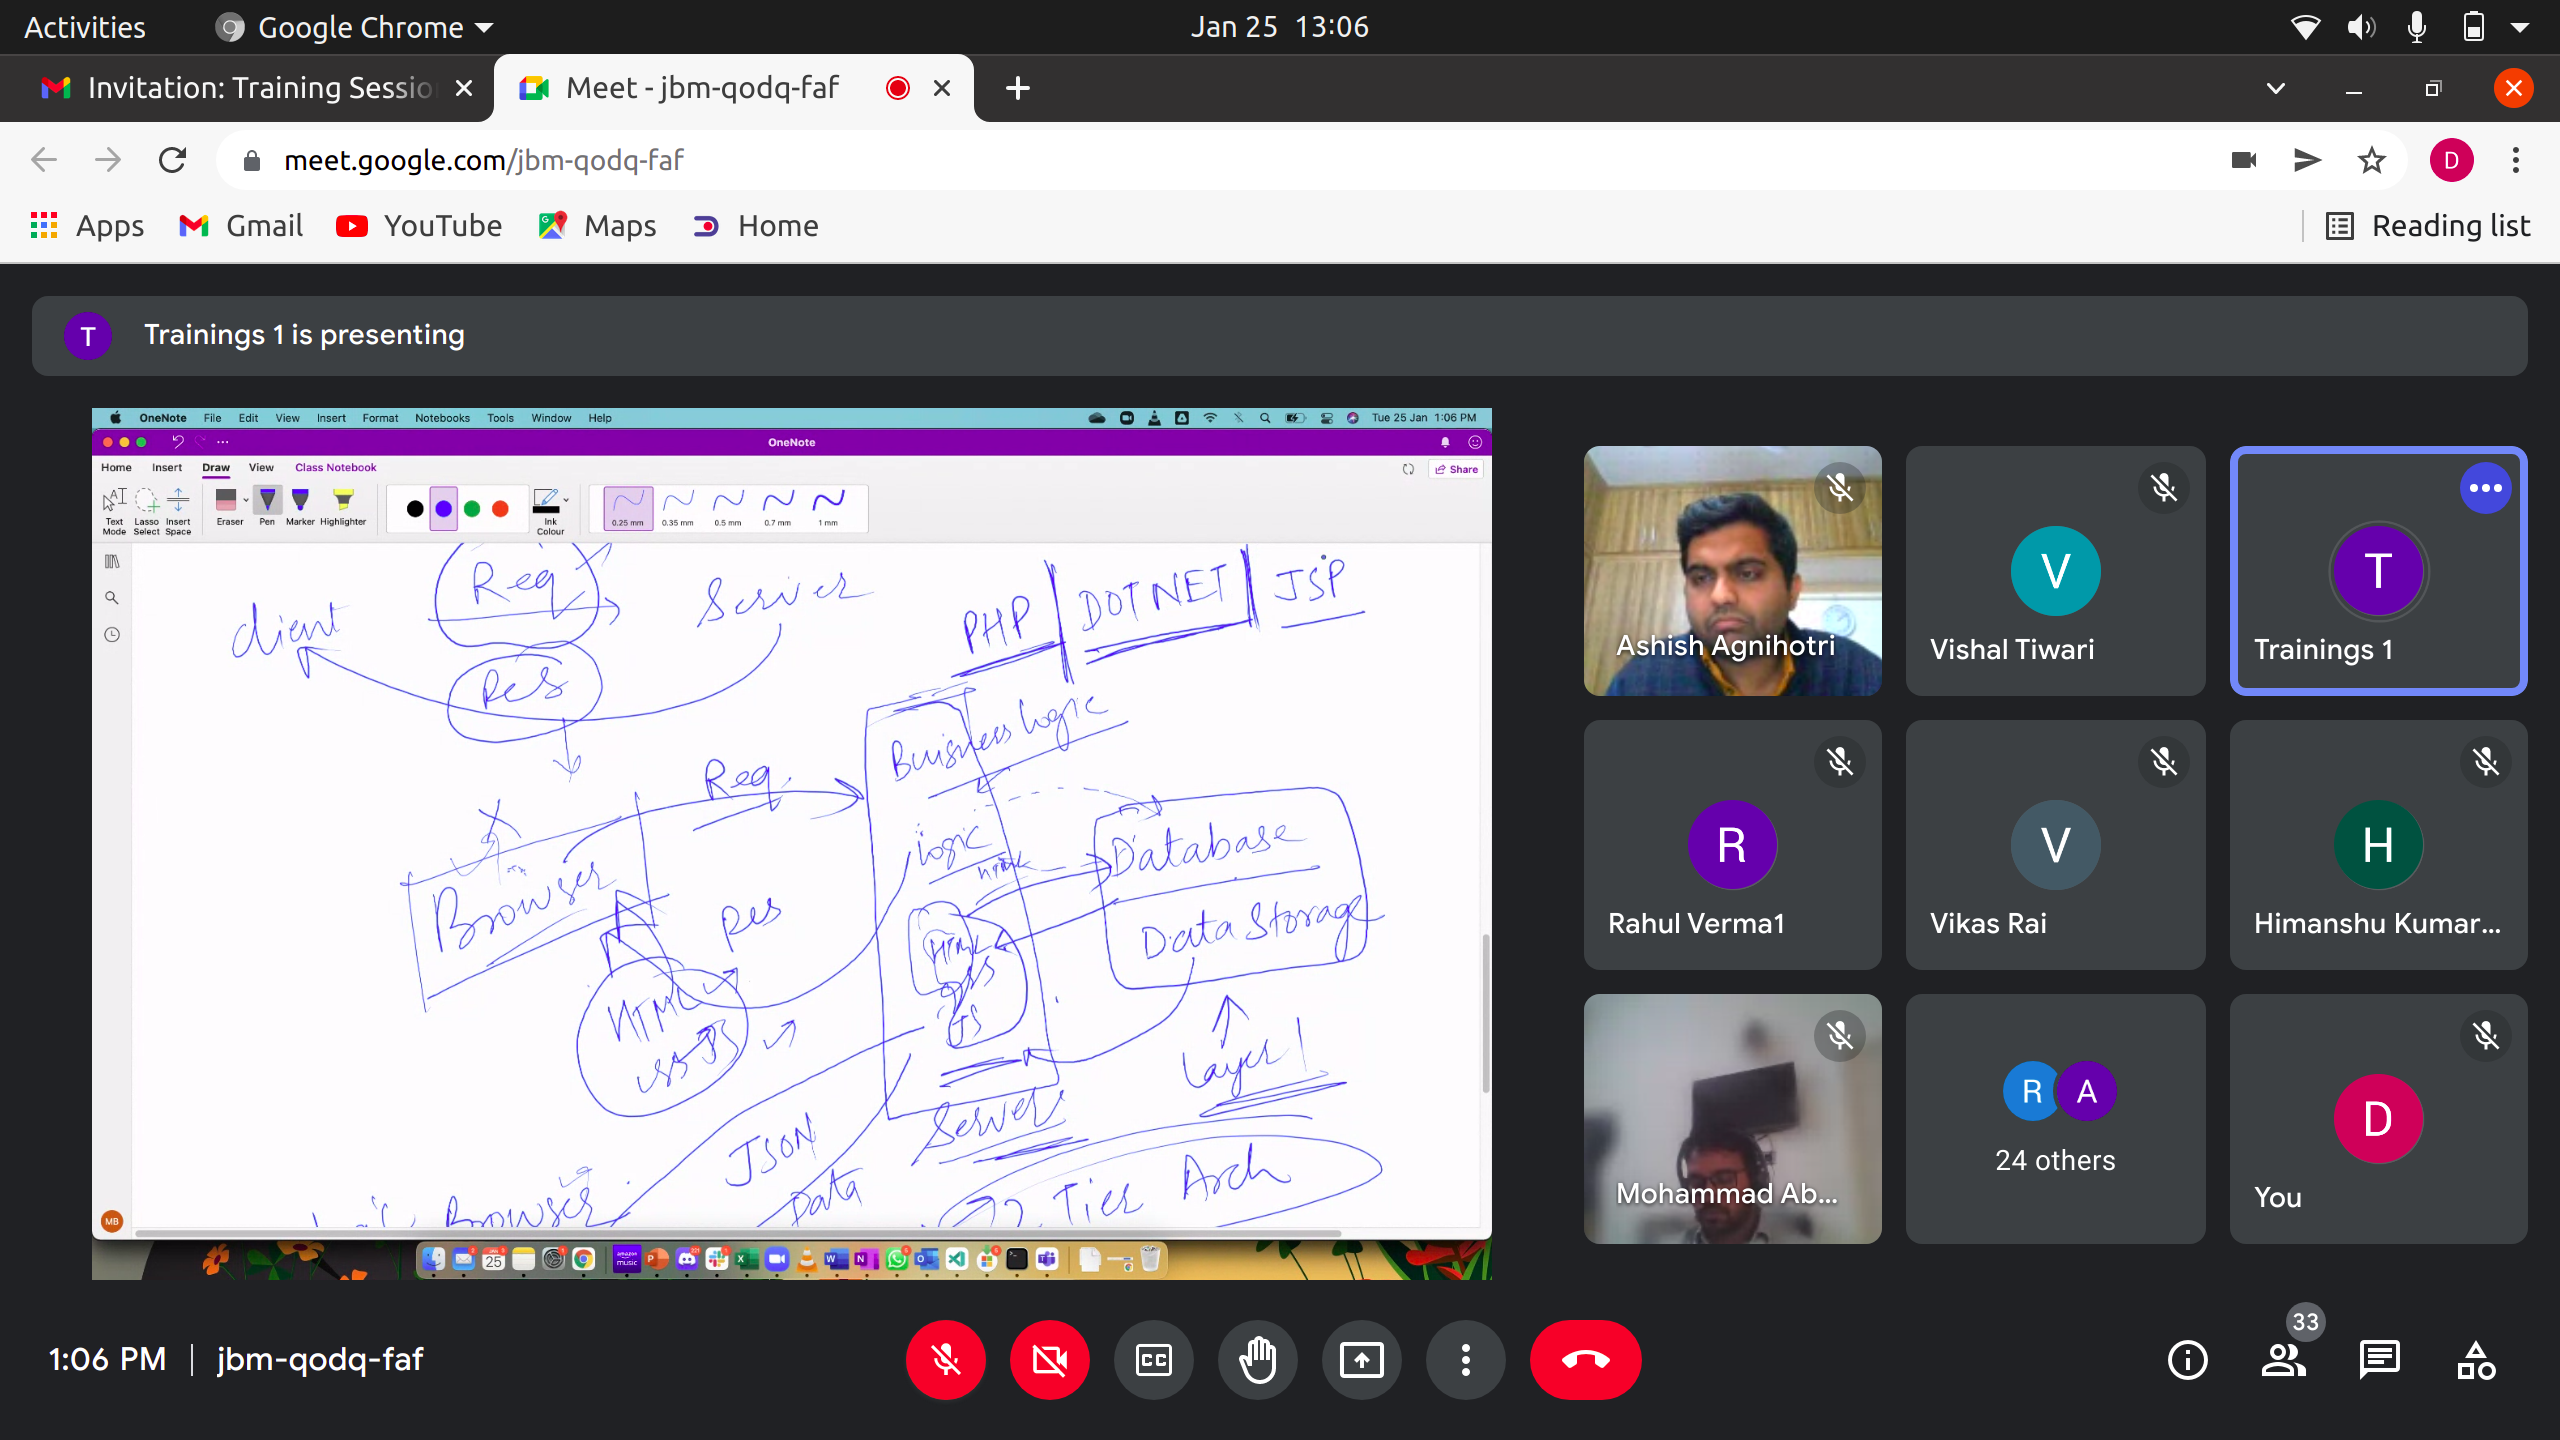 Activities
Google Chrome
Jan 25 13:06
Invitation: Training Sessio
Meet - jbm-qodq-faf
meet.google.com/jbm-qodq-faf
D
Apps
Gmail
YouTube
Maps
Home
Reading list
T
Trainings 1 is presenting
OneNote File Edit View Insert Format Notebooks Tools Window Help
Tue 25 Jan 1:06 PM
OneNote
Home Insert Draw View Class Notebook
Share
Text Mode
Lasso Select
Insert Space
Eraser
Pen
Marker
Highlighter
Ink Colour
0.25 mm
0.35 mm
0.5 mm
0.7 mm
1 mm
Req
client
Server
Res
PHP | DOTNET | JSP
Buisness logic
Req.
logic
html
Database
Browser
Res
Data Storage
HTML
CSS
JS
HTML
CSS JS
Layer 1
Server
JSON
Data
Browser
2 Tier Arch
MB
25
amazon music
Ashish Agnihotri
V
Vishal Tiwari
T
Trainings 1
R
Rahul Verma1
V
Vikas Rai
H
Himanshu Kumar...
Mohammad Ab...
R A
24 others
D
You
1:06 PM | jbm-qodq-faf
CC
33